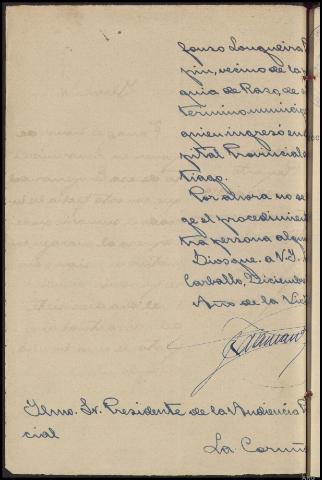 fonso Longueira
pin, vecino de la
quia de Razo, de
termino munici
quien ingreso en
pital Provincial
tiago.
Por ahora no se
ge el procedimien
tra persona algu
Dios gue. a V.I.
Carballo, Diciemb
Año de la Vic
Ilmo. Sr. Presidente de la Audiencia P
cial
La Coruñ